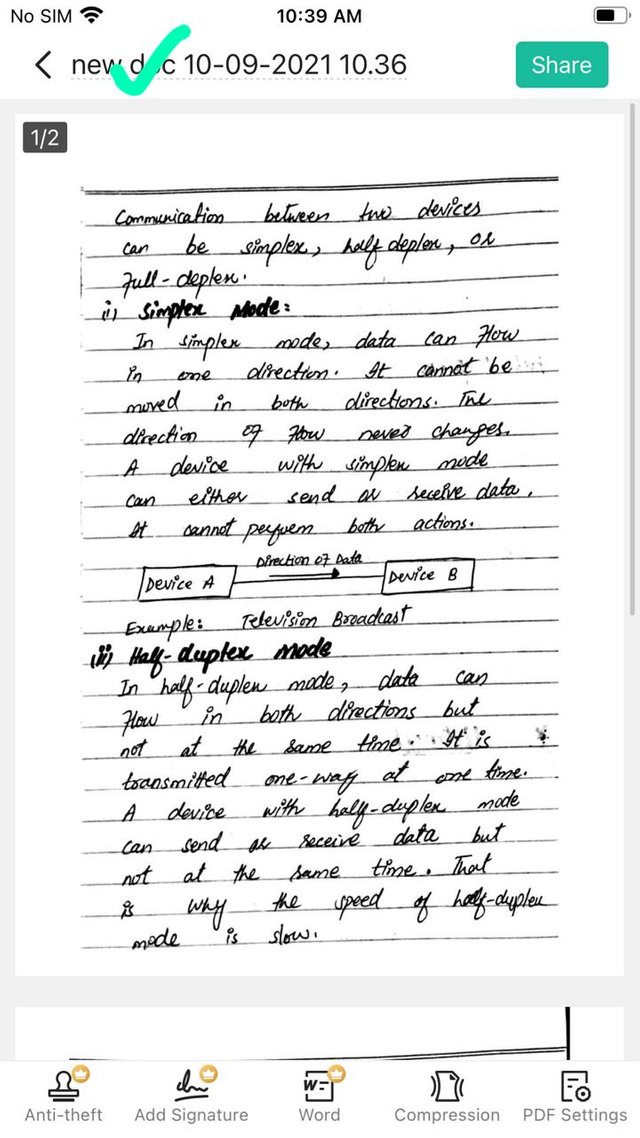 No SIM 10:39 AM
new doc 10-09-2021 10.36 Share
1/2
Communication between two devices
can be simplex, half deplex, or
Full-deplex.
(i) Simplex Mode:
In simplex mode, data can Flow
in one direction. It cannot be
moved in both directions. The
direction of Flow never changes.
A device with simplex mode
can either send or receive data.
It cannot perfuem both actions.
Direction of Data
Device A Device B
Example: Television Broadcast
(ii) Half-duplex Mode
In half-duplex mode, data can
Flow in both directions but
not at the same time. It is
transmitted one-way at one time.
A device with half-duplex mode
can send or receive data but
not at the same time. That
is why the speed of half-duplex
mode is slow.
W
Anti-theft Add Signature Word Compression PDF Settings